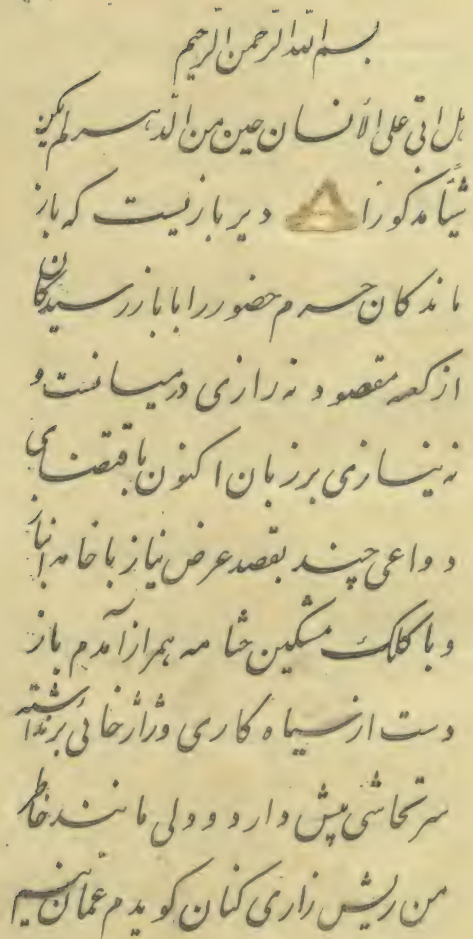 بسم الله الرحمن الرحیم
هل اتی علی الأنسان حین من الدهر لم یکن
شیأ مذکورا دیر بازیست که باز
ماندکان حرم حضور را با باز رسیدکان
از کعبه مقصود نه رازی درمیانست و
نه نیازی بر زبان اکنون باقتضای
دواعی چند بقصد عرض نیاز با خامه انباز
و با کلک مشکین ختامه همراز آمدم باز
دست از سیاه کاری و ژاژخائی برنداشته
سر تحاشی پیش دارد و دلی مانند خاطر
من ریش زاری کنان کویدم